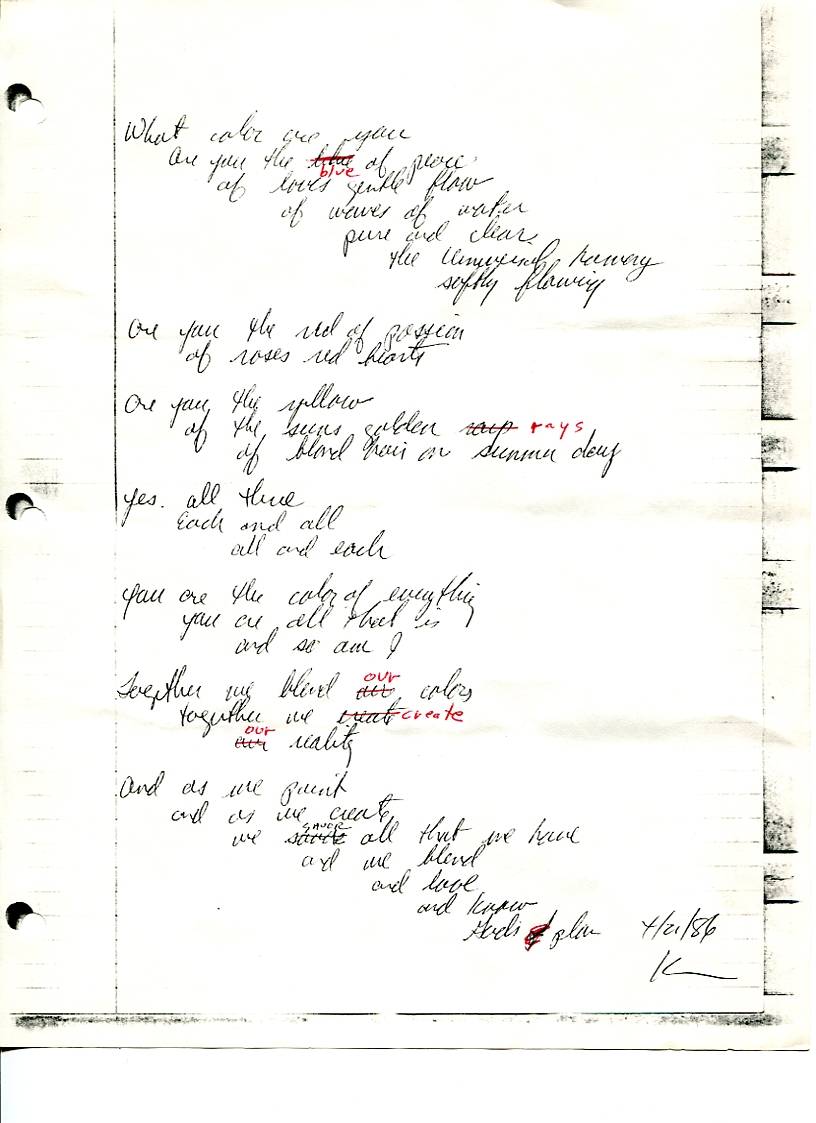 What color are you
are you the blue of peace
of loves gentle flow
of waves of water
pure and clear
the Universal
softly flowing
are you the red of passion
of roses red hearts
are you the yellow
of the suns golden rays rays
of blond hair on summer days
yes. all three
Each and all
all and each
you are the color of everything
you are all that is
and so am I
Together we blend our colors
together we create create
our reality
And as we paint
and as we create
we savor all that we have
and we blend
and love
and know
Gods plan 4/21/86